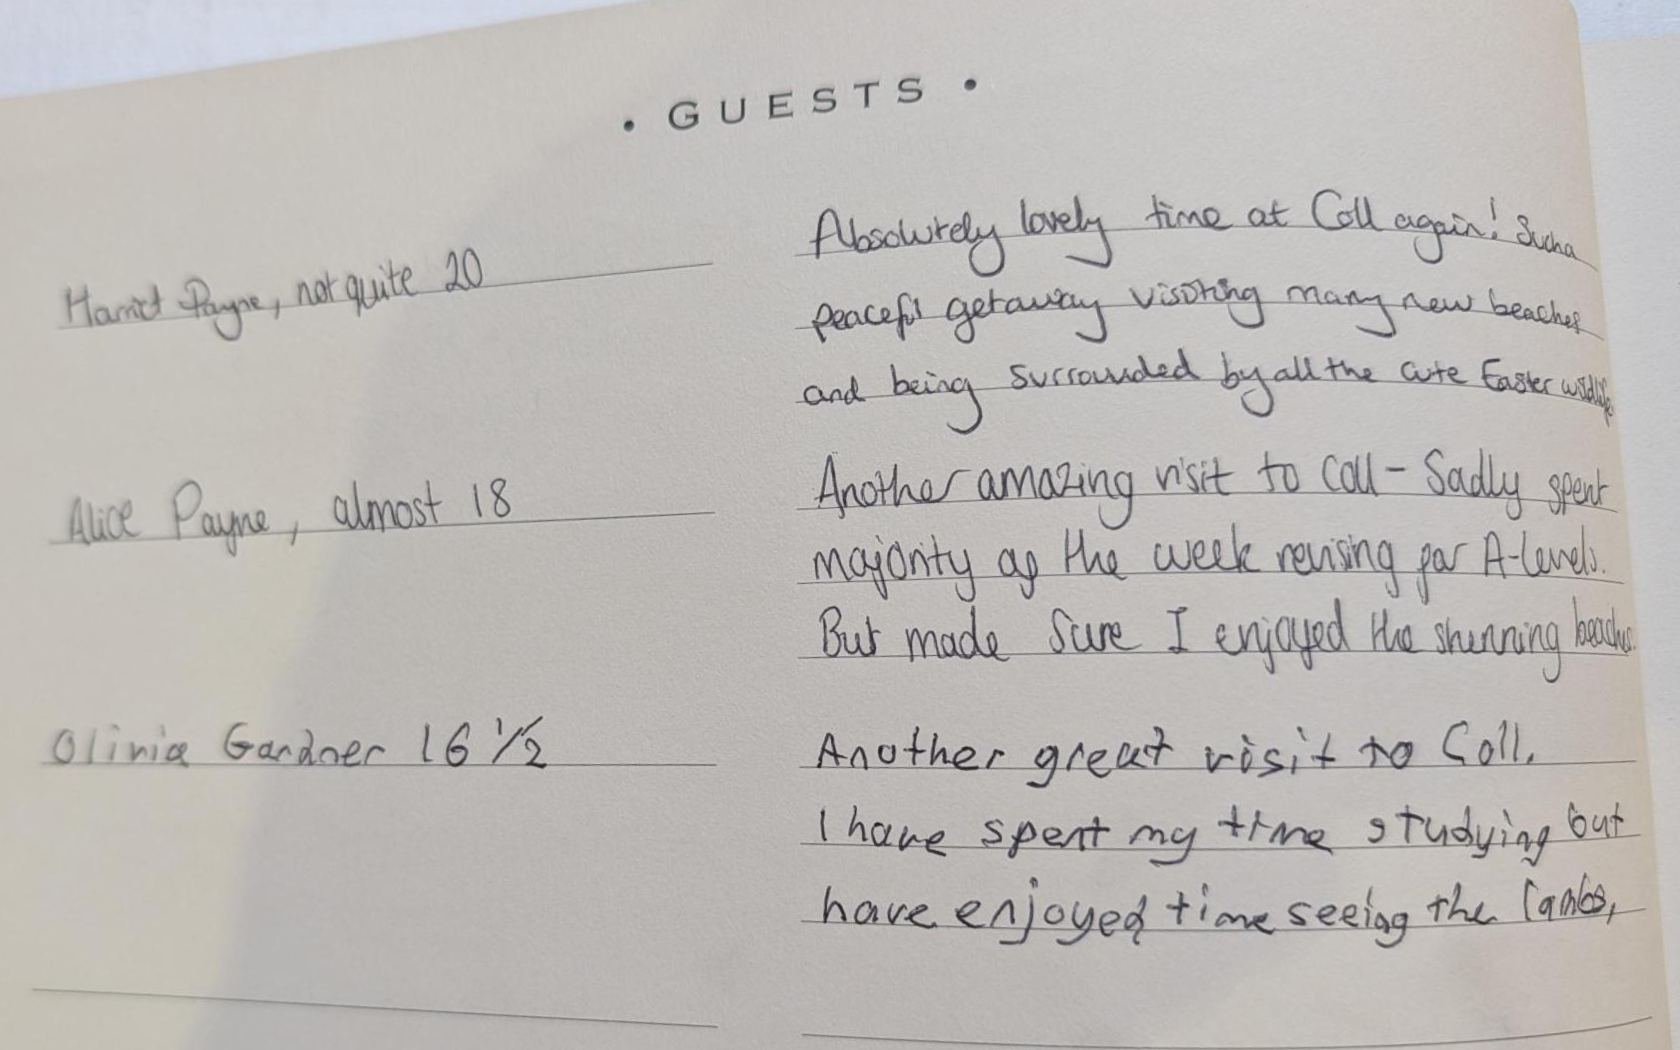 • GUESTS •
Harriet Payne, not quite 20
Absolutely lovely time at Coll again! Such a
peaceful getaway visiting many new beaches
and being surrounded by all the cute Easter wildlife
Alice Payne, almost 18
Another amazing visit to Coll - Sadly spent
majority of the week revising for A-levels.
But made sure I enjoyed the stunning beaches.
Olivia Gardner 16 1/2
Another great visit to Coll.
I have spent my time studying but
have enjoyed time seeing the lambs,